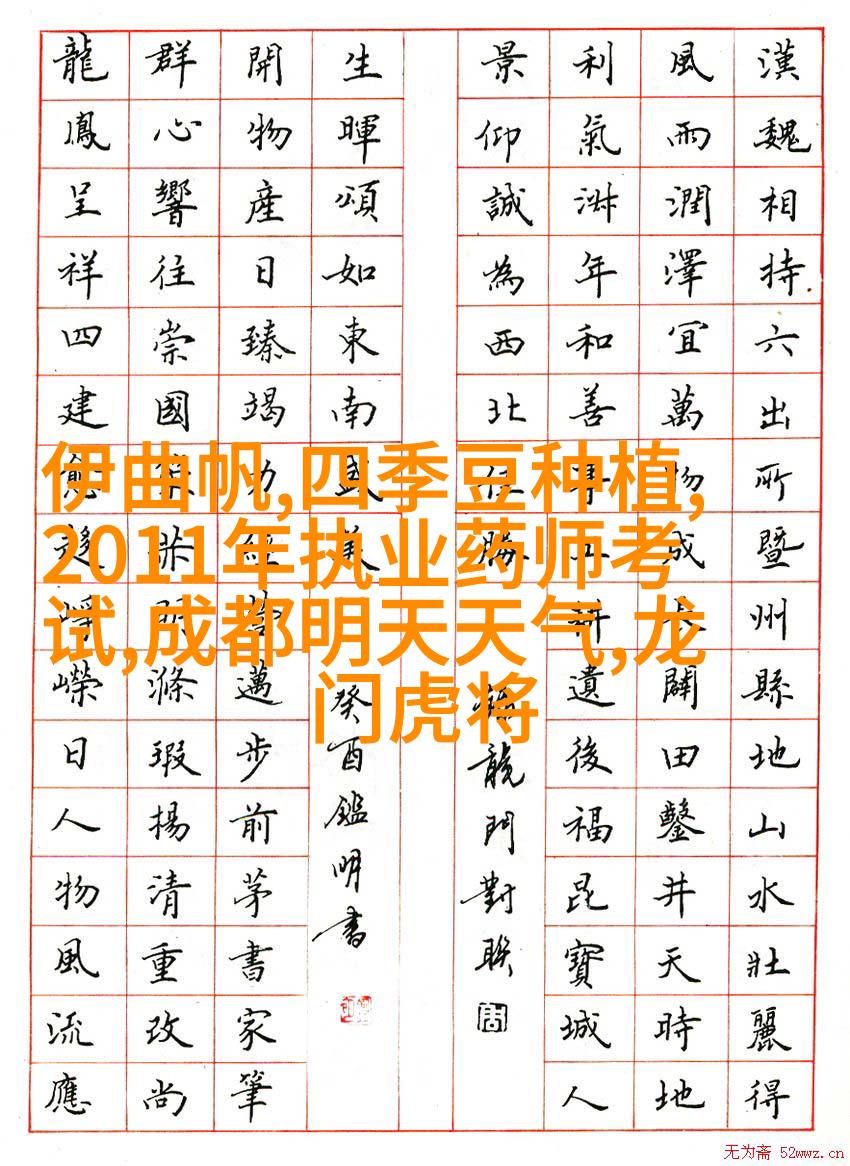 漢魏相持六出所暨州縣地山水壯麗得
風雨潤澤宜萬物成長闢田鑿井天時地
利氣年和善耕遺後福昆寶城人
景仰誠為西北勝
龍門對聯
生暉頌如東南盛美
癸酉鑑明書
開物產日臻竭力經邁步前茅書家筆
群心響往崇國滌瑕揚清重改尚
龍鳳呈祥四建愈趨崢嶸日人物風流應
伊曲帆,四季豆种植,
2011年执业药师考
试,成都明天天气,龙
门虎将
无为斋 52wwz.cn